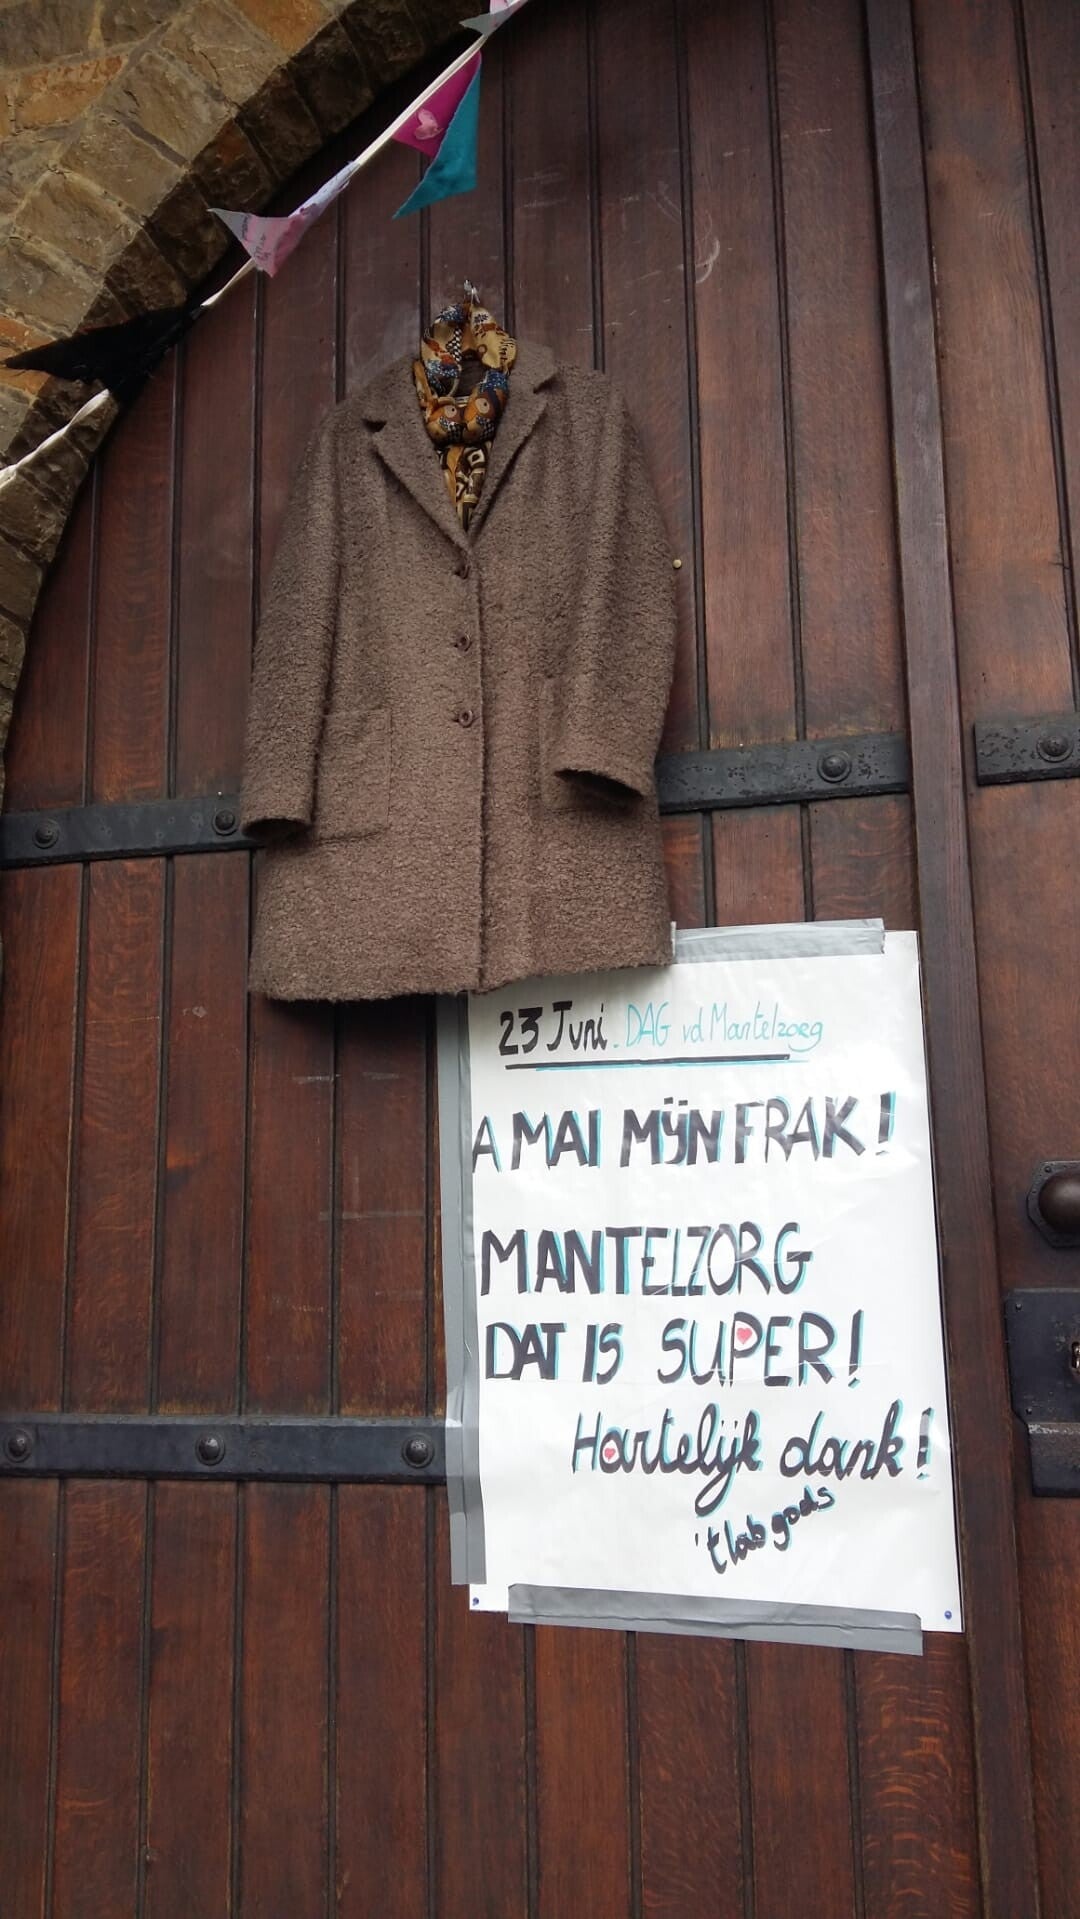 23 Juni. DAG vd Mantelzorg
A MAI MIJN FRAK!
MANTELZORG
DAT IS SUPER!
Hartelijk dank!
't lab gods